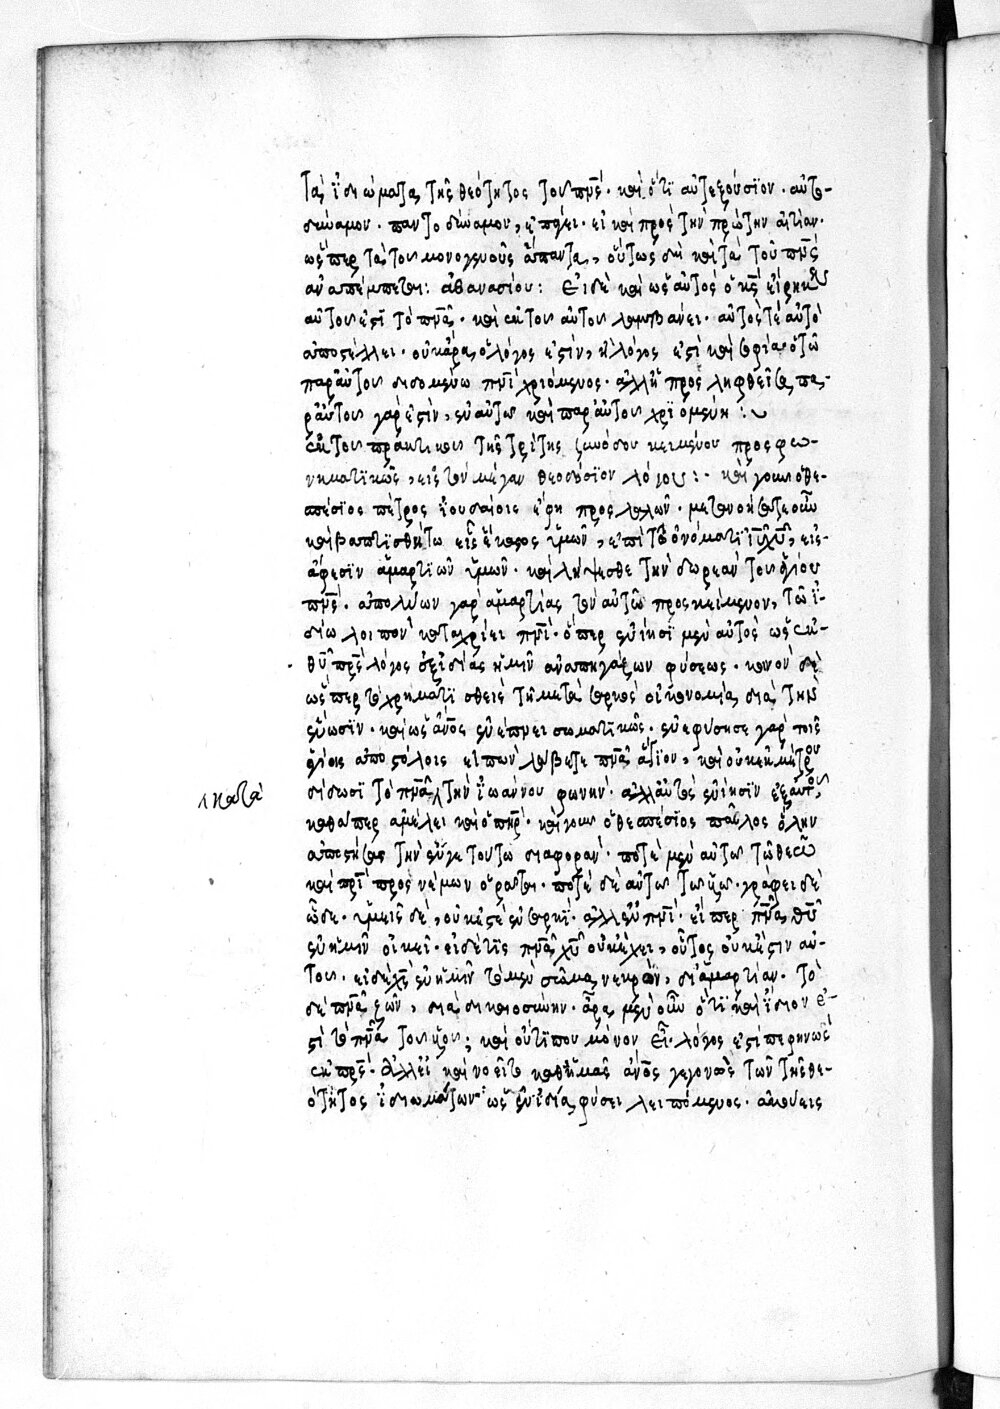 τὰ ἰδιώματα τῆς θεότητος τοῦ πνς· καὶ ὅτι αὐτεξούσιον· αὐτο-
δύναμον· παντοδύναμον, ἐπάγει· εἰ καὶ πρὸς τὴν πρώτην αἰτίαν·
ὥσπερ τὰ τοῦ μονογενοῦς ἅπαντα, οὕτως δὴ καὶ τὰ τοῦ πνς
ἀναπέμπεται: ἀθανασίου: Εἰ δὲ καὶ ὡς αὐτὸς ὁ κς εἴρηκεν
αὐτοῦ ἐστὶ τὸ πνα· καὶ ἐκ τοῦ αὐτοῦ λαμβάνει· αὐτός τε αὐτὸ
ἀποστέλλει· οὐκ ἄρα ὁ λόγος ἐστὶν, ᾗ λόγος ἐστὶ καὶ σοφία ὁ τῶ
παρ' αὐτοῦ διδομένω πνι χριόμενος· ἀλλ' ἡ προσληφθεῖσα πα-
ρ' αὐτοῦ σάρξ ἐστὶν, ἐν αὐτῶ καὶ παρ' αὐτοῦ χριομένη:
ἐκ τοῦ πρακτικοῦ τῆς τρίτης συνόδου κειμένου προσφω-
νηματικῶς, εἰς τὸν μέγαν θεοδόσιον λόγου: καὶ γοῦν ὁ θε-
σπέσιος πέτρος ἰουδαίοις ἔφη προσλαλῶν· μετανοήσατε οὖν
καὶ βαπτισθήτω εἷς ἕκαστος ὑμῶν, ἐπὶ τῶ ὀνόματι ιυ χυ, εἰς
ἄφεσιν ἁμαρτιῶν ὑμῶν· καὶ λήψεσθε τὴν δωρεὰν τοῦ ἁγίου
πνς· ἀπολύων γὰρ ἁμαρτίας τὸν αὐτῶ προσκείμενον, τῶ ἰ-
δίω λοιπὸν καταχρίει πνι· ὅπερ ἐνίησι μὲν αὐτὸς ὡς ἐκ
θυ πρς λόγος ἐξ ἰδίας ἡμῖν ἀναπηγάζων φύσεως· κοινὸν δὲ
ὥσπερ τὸ χρῆμα τιθεὶς τῆ μετὰ σαρκὸς οἰκονομία διὰ τὴν
ἕνωσιν· καὶ ὡς ἄνος ἐνέπνει σωματικῶς· ἐνεφύσησε γὰρ τοῖς
ἁγίοις ἀποστόλοις εἰπὼν λάβετε πνα ἅγιον, καὶ οὐκ ἐκ μέτρου
δίδωσι τὸ πνα τὴν ἰωάννου φωνήν· ἀλλ' αὐτὸς ἐνίησιν ἐξ αὐτοῦ,
λ κατὰ
καθάπερ ἀμέλει καὶ ὁ πηρ· καὶ γοῦν ὁ θεσπέσιος παῦλος ὅλην
ἀποστήσας τὴν εἴς γε τοῦτο διαφοράν· ποτὲ μὲν αὐτὸ τῶ θεῶ
καὶ πρι προσνέμων ὁρᾶται· ποτὲ δὲ αὐτὸ τῶ υω· γράφει δὲ
ὧδε· ὑμεῖς δὲ, οὐκ ἐστὲ ἐν σαρκὶ· ἀλλ' ἐν πνι· εἴπερ πνα θυ
ἐν ἡμῖν οἰκεῖ· εἰ δέ τις πνα χυ οὐκ ἔχει, οὗτος οὐκ ἔστιν αὐ-
τοῦ· εἰ δὲ χς ἐν ἡμῖν τὸ μὲν σῶμα νεκρὸν, δι' ἁμαρτίαν· τὸ
δὲ πνα ζωὴ, διὰ δικαιοσύνην· ἆρα μὲν οὖν ὅτι καὶ ἴδιον ἐ-
στὶ τὸ πνα τοῦ υυ; καὶ οὔτι που μόνον ᾗ λόγος ἐστὶ πεφηνὼς
ἐκ πρς· ἀλλ' εἰ καὶ νοοῖτο καθ' ἡμᾶς ἄνος γεγονὼς τῶν τῆς θε-
ότητος ἰδιωμάτων ὡς ἐν ἰδία φύσει λειπόμενος·